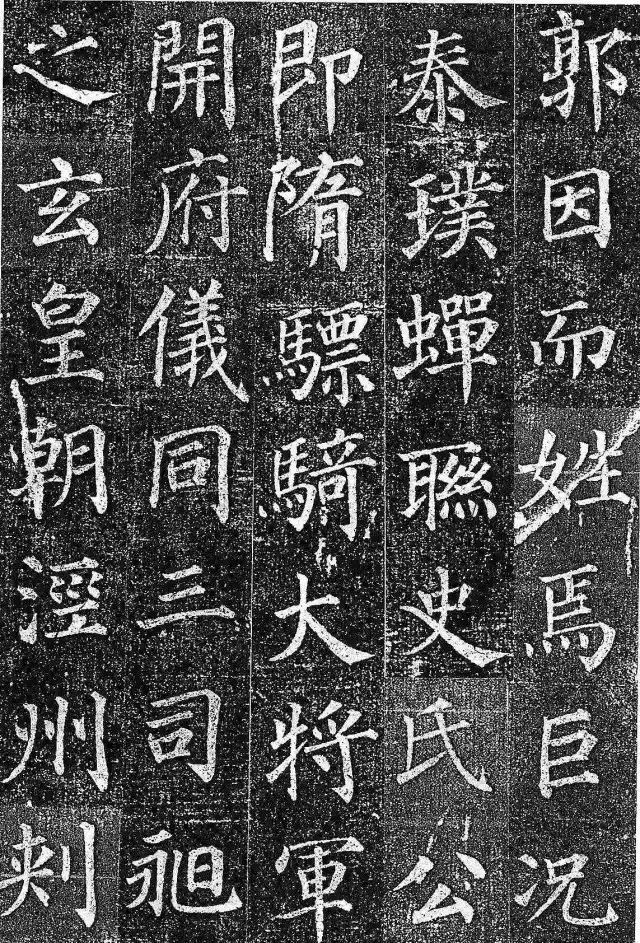 郭因而姓焉巨况
泰璞蟬聯史氏公
即隋驃騎大將軍
開府儀同三司昶
之玄皇朝涇州刺